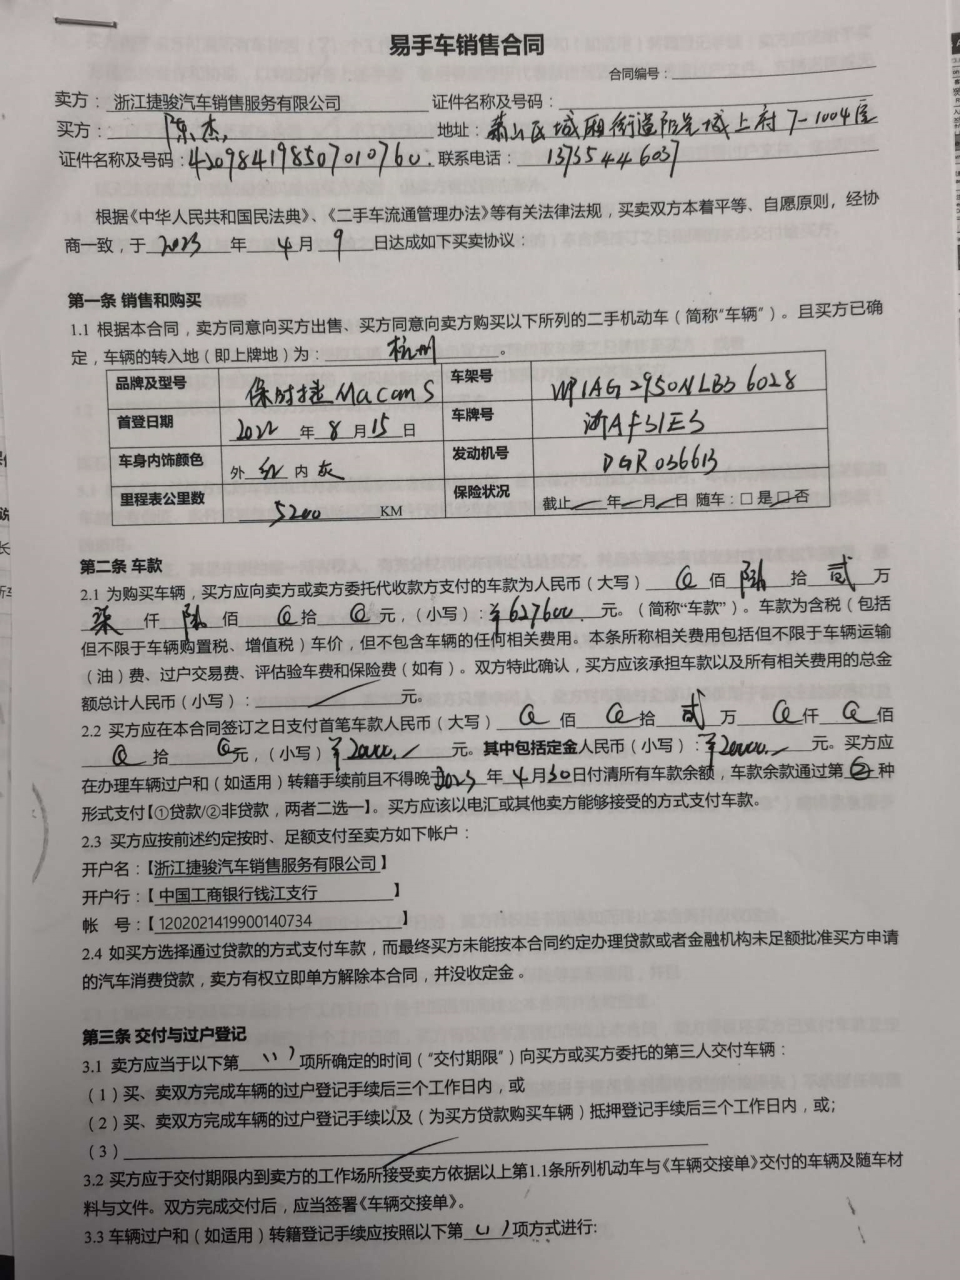 易手车销售合同
合同编号：
卖方：浙江捷骏汽车销售服务有限公司 证件名称及号码：
买方：陈杰 地址：萧山区城厢街道阳光城上府7-1004室
证件名称及号码：420984198507010760. 联系电话：13735446037
根据《中华人民共和国民法典》、《二手车流通管理办法》等有关法律法规，买卖双方本着平等、自愿原则，经协
商一致，于 2023 年 4 月 9 日达成如下买卖协议：
第一条 销售和购买
1.1 根据本合同，卖方同意向买方出售、买方同意向卖方购买以下所列的二手机动车（简称“车辆”）。且买方已确
定，车辆的转入地（即上牌地）为： 杭州 。
品牌及型号 保时捷Macan S 车架号 WP1AG2950NLB36028
首登日期 2022 年 8 月 15 日 车牌号 浙AF31E3
车身内饰颜色 外 红 内 灰 发动机号 DGR036613
里程表公里数 5200 KM 保险状况 截止 年 月 日 随车：□ 是 □ 否
第二条 车款
2.1 为购买车辆，买方应向卖方或卖方委托代收款方支付的车款为人民币（大写） 佰 陆 拾 贰 万
柒 仟 陆 佰 拾 元，（小写）：¥627600 元。（简称“车款”）。车款为含税（包括
但不限于车辆购置税、增值税）车价，但不包含车辆的任何相关费用。本条所称相关费用包括但不限于车辆运输
（油）费、过户交易费、评估验车费和保险费（如有）。双方特此确认，买方应该承担车款以及所有相关费用的总金
额总计人民币（小写）： 元。
2.2 买方应在本合同签订之日支付首笔车款人民币（大写） 佰 拾 贰 万 仟 佰
拾 元，（小写）¥20000. 元。其中包括定金人民币（小写）：¥20000. 元。买方应
在办理车辆过户和（如适用）转籍手续前且不得晚于2023 年 4 月 30 日付清所有车款余额，车款余款通过第 ② 种
形式支付【①贷款/②非贷款，两者二选一】。买方应该以电汇或其他卖方能够接受的方式支付车款。
2.3 买方应按前述约定按时、足额支付至卖方如下帐户：
开户名：【浙江捷骏汽车销售服务有限公司】
开户行：【中国工商银行钱江支行】
帐 号：【1202021419900140734】
2.4 如买方选择通过贷款的方式支付车款，而最终买方未能按本合同约定办理贷款或者金融机构未足额批准买方申请
的汽车消费贷款，卖方有权立即单方解除本合同，并没收定金。
第三条 交付与过户登记
3.1 卖方应当于以下第 (1) 项所确定的时间（“交付期限”）向买方或买方委托的第三人交付车辆：
（1）买、卖双方完成车辆的过户登记手续后三个工作日内，或
（2）买、卖双方完成车辆的过户登记手续以及（为买方贷款购买车辆）抵押登记手续后三个工作日内，或；
（3）
3.2 买方应于交付期限内到卖方的工作场所接受卖方依据以上第1.1条所列机动车与《车辆交接单》交付的车辆及随车材
料与文件。双方完成交付后，应当签署《车辆交接单》。
3.3 车辆过户和（如适用）转籍登记手续应按照以下第 (1) 项方式进行: